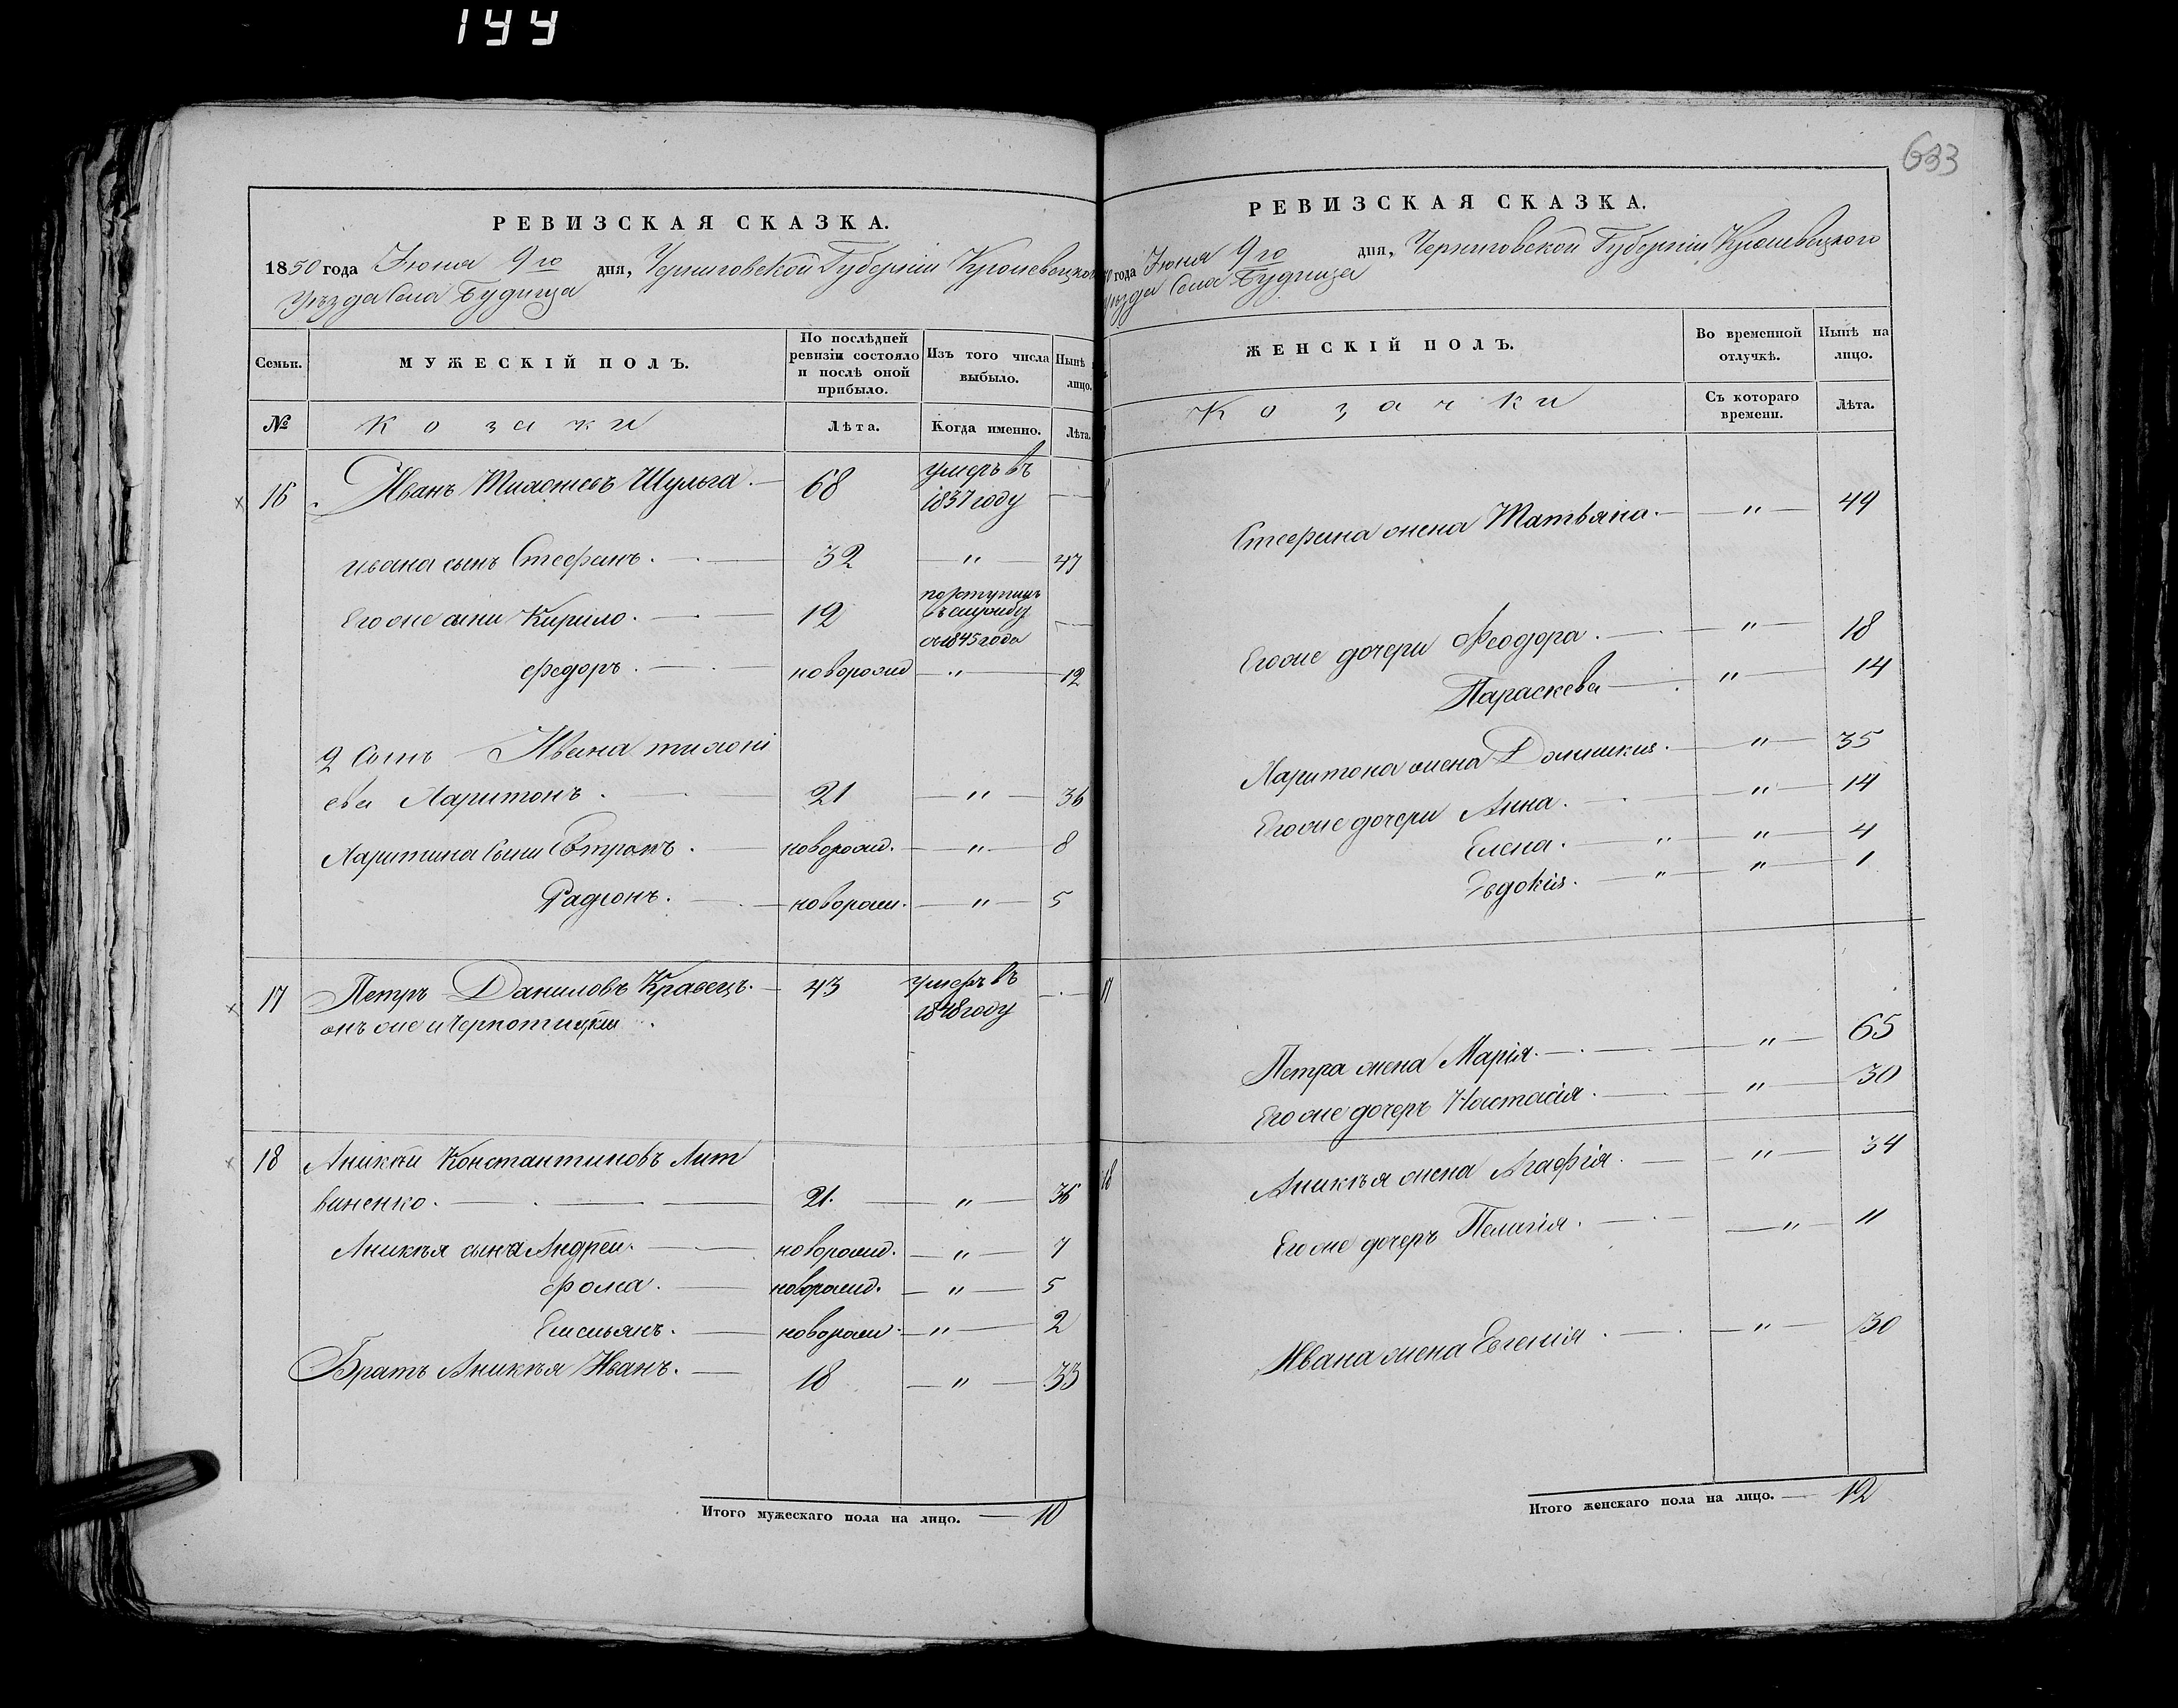 144
633
РЕВИЗСКАЯ СКАЗКА.
1850 года Июня 9го дня, Черниговской Губерніи Кролевецкого
Уѣзда Села Будища
Семьи. МУЖЕСКІЙ ПОЛЪ. По послѣдней ревизіи состояло и послѣ оной прибыло. Изъ того числа выбыло. Нынѣ лицо.
№ Козаки Лѣта. Когда именно. Лѣта.
16 Иванъ Тихоніевъ Шульга. 68 умеръ въ 1837 году —
Ивана сынъ Стефанъ. 32 — " — 47
Его же сыни Кирило. 12 поступилъ въ службу съ 1845 года —
Федоръ. новорожд — " — 12
2 Сынъ Ивана тихоні
ева Харитонъ. 21 — " — 36
Харитина Сыни новорожд. — " — 8
Радіонъ. новорож. — " — 5
17 Петръ Даниловъ Кравецъ. 43 умеръ въ 1848 году —
онъ же и
18 Аникѣй Константиновъ Лит
виненко. 21. — " — 36
Аникѣя сына Андрей. новорожд. — " — 7
Фома. новорожд. — " — 5
Емельянъ. новорож. — " — 2
Братъ Аникѣя Иванъ. 18 — " — 33
Итого мужескаго пола на лицо. — 10
РЕВИЗСКАЯ СКАЗКА.
года Июня 9го дня, Черниговской Губерніи Кролевецкого
Уѣзда Села Будища
ЖЕНСКІЙ ПОЛЪ. Во временной отлучкѣ. Нынѣ на лицо.
Козачки Съ котораго времени. Лѣта.
Стефана жена Татьяна. — " — 49
Его же дочери Феодора. — " — 18
Параскева — " — 14
Харитона жена — " — 35
Его же дочери Анна. — " — 14
Елена. — " — " — 4
Евдокія. — " — " — 1
17
Петра жена Марія. — " — 65
Его же дочеръ Настасія. — " — 30
18 Аникѣя жена Агафія. — " — 34
Его же дочеръ Пелагія. — " — 11
Ивана жена Евгенія. — " — 30
Итого женскаго пола на лицо. — 12